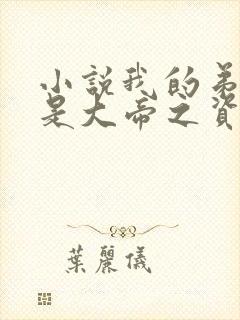 小說我的弟
是大帝之資
葉麗儀